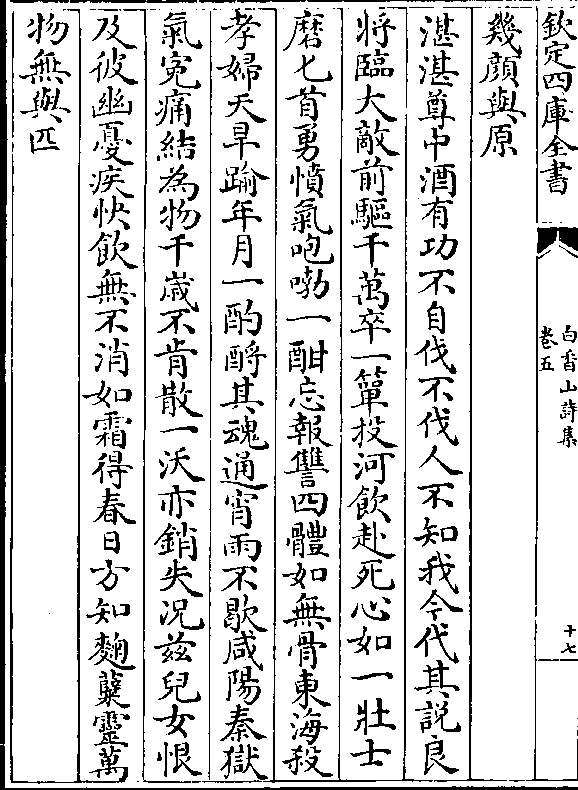 欽定四庫全書
白香山詩集
卷五
十七
幾顔與原
湛湛尊中酒有功不自伐不伐人不知我今代其説良
將臨大敵前驅千萬卒一簞投河飲赴死心如一壯士
磨匕首勇憤氣咆㪍一酣忘報讐四體如無骨東海殺
孝婦天旱踰年月一酌酹其魂通宵雨不歇咸陽秦獄
氣寃痛結為物千嵗不肯散一沃亦銷失況兹兒女恨
及彼幽憂疾快飲無不消如霜得春日方知麴糵靈萬
物無與匹